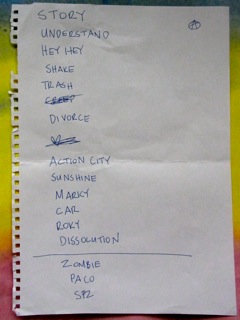 STORY
A
UNDERSTAND
HEY HEY
SHAKE
TRASH
CREEP
DIVORCE
ACTION CITY
SUNSHINE
MARKY
CAR
ROKY
DISSOLUTION
ZOMBIE
PACO